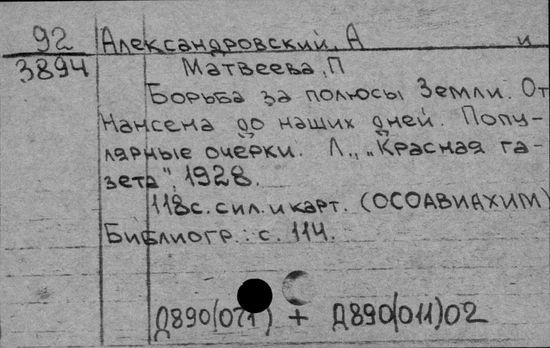 92 Александровский, А и
3894 Матвеева, П
Борьба за полюсы Земли. От
Нансена до наших дней. Попу-
лярные очерки. Л., „Красная га-
зета", 1928.
118с. с ил. и карт. (ОСОАВИАХИМ)
Библиогр.: с. 114.
Д890(071) + Д890(011)02